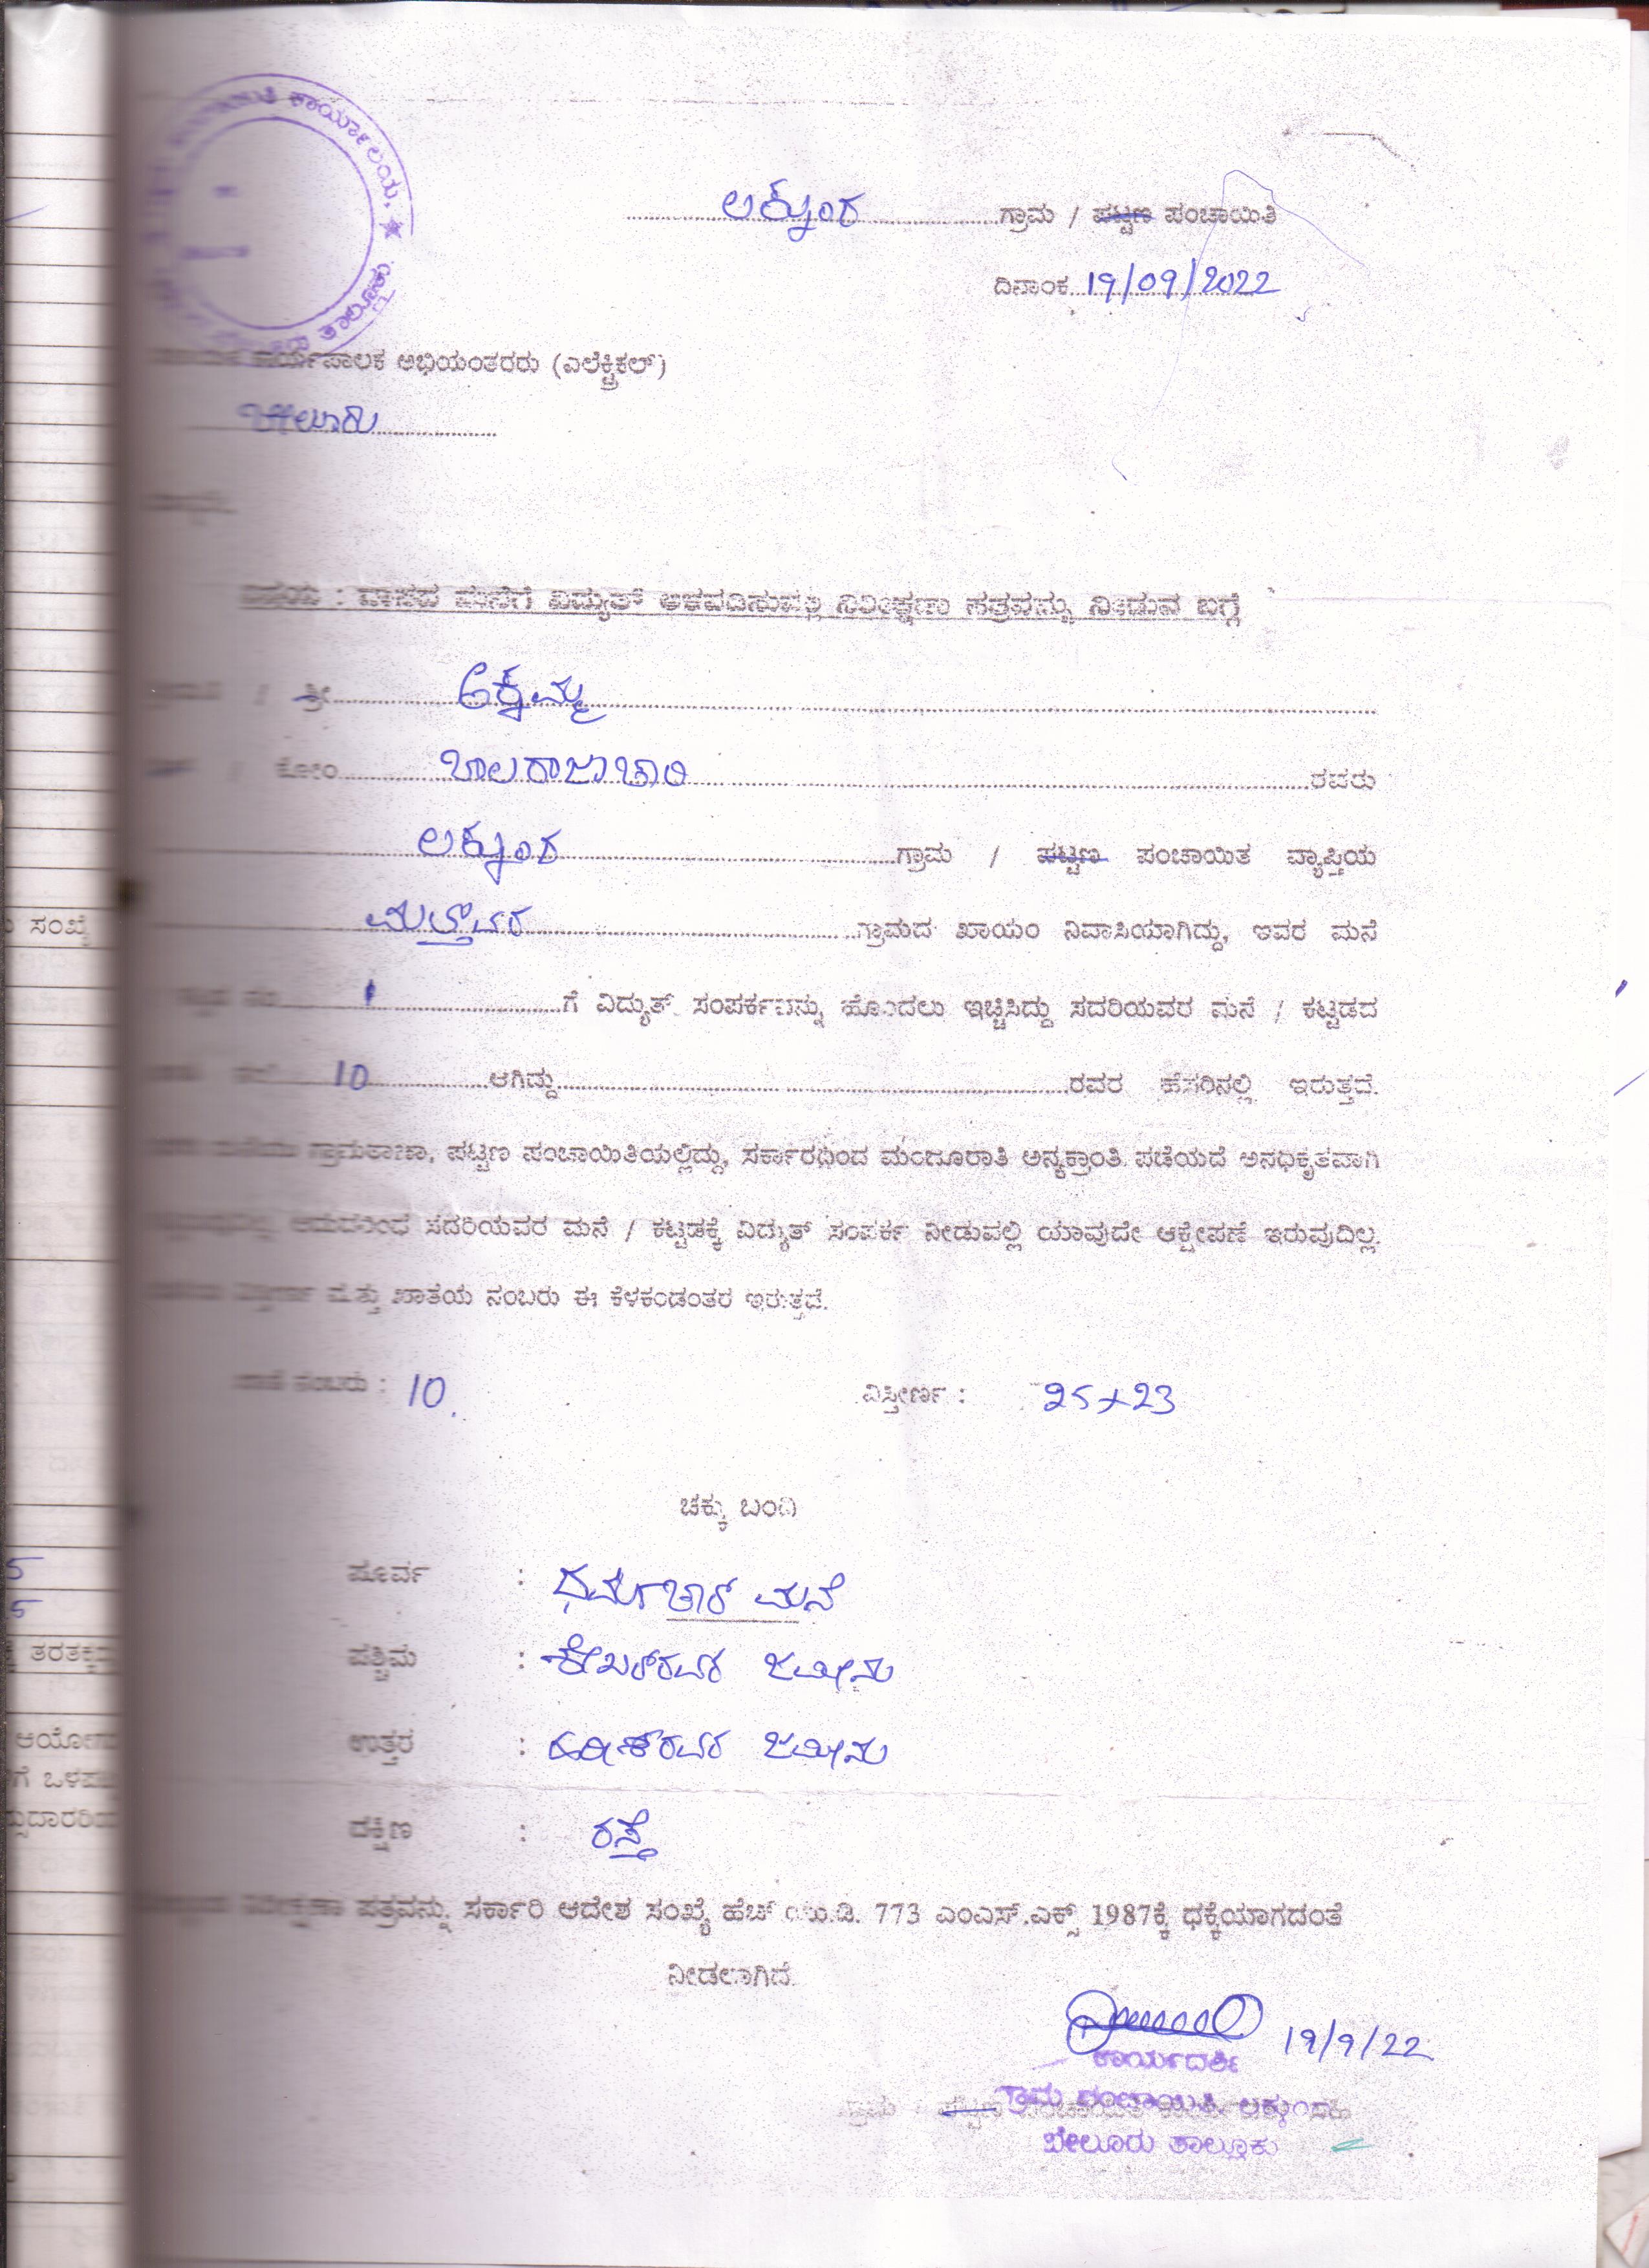 ಕಾರ್ಯಾಲಯ, ★
ಲಕ್ಕುಂದ ಗ್ರಾಮ / ಪಟ್ಟಣ ಪಂಚಾಯಿತಿ
ದಿನಾಂಕ 19/09/2022
ಕಾರ್ಯಪಾಲಕ ಅಭಿಯಂತರರು (ಎಲೆಕ್ಟ್ರಿಕಲ್)
ಬೇಲೂರು
ವಿಷಯ : ವಾಸದ ಮನೆಗೆ ವಿದ್ಯುತ್ ಅಳವಡಿಸುವಲ್ಲಿ ನಿರೀಕ್ಷಣಾ ಪತ್ರವನ್ನು ನೀಡುವ ಬಗ್ಗೆ
/ ಶ್ರೀ
/ ಕೋಂ ಬಾಲರಾಜಾಚಾರಿ ರವರು
ಲಕ್ಕುಂದ ಗ್ರಾಮ / ಪಟ್ಟಣ ಪಂಚಾಯಿತ ವ್ಯಾಪ್ತಿಯ
ಮುತ್ತಾವರ ಗ್ರಾಮದ ಖಾಯಂ ನಿವಾಸಿಯಾಗಿದ್ದು, ಇವರ ಮನೆ
1 ಗೆ ವಿದ್ಯುತ್ ಸಂಪರ್ಕವನ್ನು ಹೊಂದಲು ಇಚ್ಚಿಸಿದ್ದು ಸದರಿಯವರ ಮನೆ / ಕಟ್ಟಡದ
10 ಆಗಿದ್ದು ರವರ ಹೆಸರಿನಲ್ಲಿ ಇರುತ್ತದೆ.
ಗ್ರಾಮಠಾಣಾ, ಪಟ್ಟಣ ಪಂಚಾಯಿತಿಯಲ್ಲಿದ್ದು, ಸರ್ಕಾರದಿಂದ ಮಂಜೂರಾತಿ ಅನ್ಯಕ್ರಾಂತಿ ಪಡೆಯದೆ ಅನಧಿಕೃತವಾಗಿ
ಆದುದರಿಂದ ಸದರಿಯವರ ಮನೆ / ಕಟ್ಟಡಕ್ಕೆ ವಿದ್ಯುತ್ ಸಂಪರ್ಕ ನೀಡುವಲ್ಲಿ ಯಾವುದೇ ಆಕ್ಷೇಪಣೆ ಇರುವುದಿಲ್ಲ.
ವಿಸ್ತೀರ್ಣ ಮತ್ತು ಖಾತೆಯ ನಂಬರು ಈ ಕೆಳಕಂಡಂತರ ಇರುತ್ತವೆ.
ಖಾತೆ ನಂಬರು : 10. ವಿಸ್ತೀರ್ಣ : 25×23
ಚಕ್ಕು ಬಂದಿ
ಪೂರ್ವ : ಧರ್ಮಾಚಾರ್ ಮನೆ
ಪಶ್ಚಿಮ : ಶೇಖರ್‌ರವರ ಜಮೀನು
ಉತ್ತರ : ಹರೀಶ್‌ರವರ ಜಮೀನು
ದಕ್ಷಿಣ : ರಸ್ತೆ
ನಿರೀಕ್ಷಣಾ ಪತ್ರವನ್ನು ಸರ್ಕಾರಿ ಆದೇಶ ಸಂಖ್ಯೆ ಹೆಚ್.ಯು.ಡಿ. 773 ಎಂಎಸ್.ಎಕ್ಸ್ 1987ಕ್ಕೆ ಧಕ್ಕೆಯಾಗದಂತೆ
ನೀಡಲಾಗಿದೆ.
19/9/22
ಕಾರ್ಯದರ್ಶಿ
ಗ್ರಾಮ ಪಂಚಾಯಿತಿ, ಲಕ್ಕುಂದ
ಬೇಲೂರು ತಾಲ್ಲೂಕು
ಸಂಖ್ಯೆ
5
5